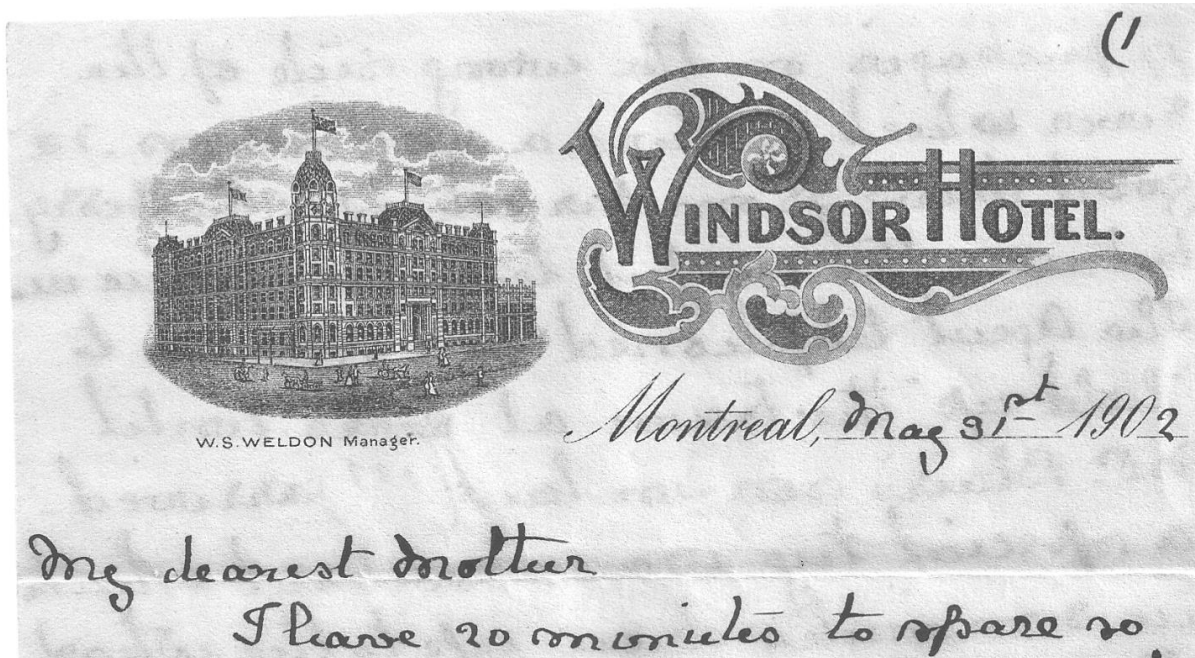 (1
WINDSOR HOTEL.
W.S. WELDON Manager.
Montreal, May 31st 1902
My dearest Mother
I have 20 minutes to spare so